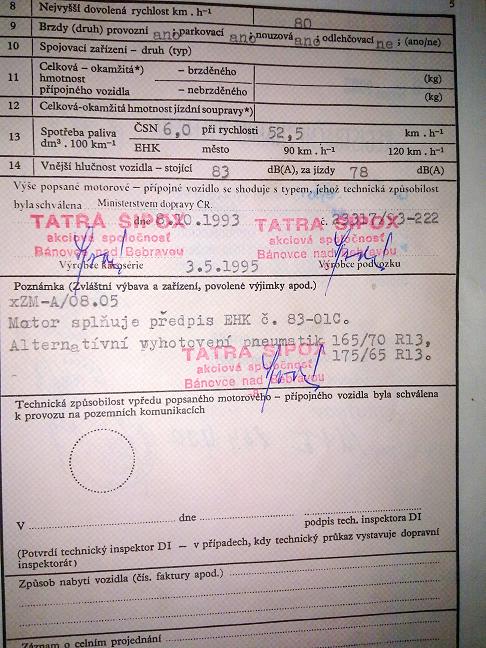 5
8 Nejvyšší dovolená rychlost km . h⁻¹ 80
9 Brzdy (druh) provozní ano parkovací ano, nouzová ano, odlehčovací ne ; (ano/ne)
10 Spojovací zařízení – druh (typ)
11 Celková – okamžitá*) – brzděného (kg)
hmotnost
přípojného vozidla – nebrzděného (kg)
12 Celková-okamžitá hmotnost jízdní soupravy*)
13 Spotřeba paliva ČSN 6,0 při rychlosti 52,5 km . h⁻¹
dm³ . 100 km⁻¹ EHK město 90 km . h⁻¹ 120 km . h⁻¹
14 Vnější hlučnost vozidla – stojící 83 dB(A), za jízdy 78 dB(A)
Výše popsané motorové – přípojné vozidlo se shoduje s typem, jehož technická způsobilost
byla schválena Ministerstvem dopravy ČR.
dne 8.10.1993 č. 29317/93-222
TATRA SIPOX TATRA SIPOX
akciová spoločnosť akciová spoločnosť
Bánovce nad Bebravou Bánovce nad Bebravou
Výrobce karosérie 3.5.1995 Výrobce podvozku
Poznámka (Zvláštní výbava a zařízení, povolené výjimky apod.)
xZM-A/08.05
Motor splňuje předpis EHK č. 83-01C.
Alternatívní vyhotovení pneumatik 165/70 R13,
175/65 R13.
TATRA SIPOX
akciová spoločnosť
Bánovce nad Bebravou
Technická způsobilost vpředu popsaného motorového – přípojného vozidla byla schválena
k provozu na pozemních komunikacích
V dne
podpis tech. inspektora DI
(Potvrdí technický inspektor DI — v případech, kdy technický průkaz vystavuje dopravní
inspektorát)
Způsob nabytí vozidla (čís. faktury apod.)
Záznam o celním projednání